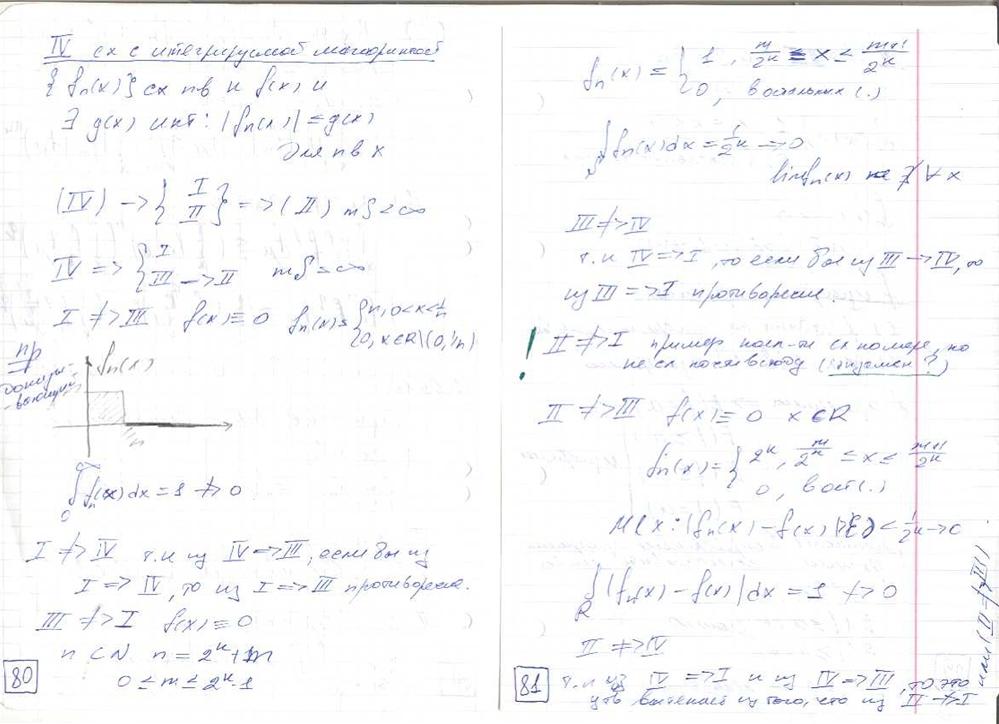 IV сх с интегрируемой мажорантой
{fn(x)} сх пв к f(x) и
∃ g(x) инт: |fn(x)| ≤ g(x)
для пв x
(IV) -> { I II } => (II) mS < ∞
IV => { I III -> II mS = ∞
I ≠> III f(x) ≡ 0 fn(x) = { n, 0<x<1/n
0, x∈R\(0,1/n)
пр
доказы-
-вающий
fn(x)
1/n
∞∫0 fn(x)dx = 1 ≠> 0
I ≠> IV т.к из IV => III, если бы из
I => IV, то из I => III противореч.
III ≠> I f(x) ≡ 0
n ⊂ N n = 2^k + m
0 ≤ m ≤ 2^k-1
80
fn(x) = { 1, m/2^k ≤ x ≤ m+1/2^k
0, в остальных (.)
∫fn(x)dx = 1/2^k -> 0
lim fn(x) не ∃ ∀ x
III ≠> IV
т.к IV => I, то если бы из III -> IV, то
из III => I противоречие
! II ≠> I пример посл-ти сх по мере, но
не сх почти всюду (экзамен?)
II ≠> III f(x) ≡ 0 x ∈ R
fn(x) = { 2^k, m/2^k ≤ x ≤ m+1/2^k
0, в ост (.)
M(x: |fn(x) - f(x)| > ε) < 1/2^k -> 0
∫R |fn(x) - f(x)|dx = 1 ≠> 0
II ≠> IV
81
т.к из IV => I и из IV => III, то это
утв вытекает из того, что из II ≠> I
или (II ≠> III)